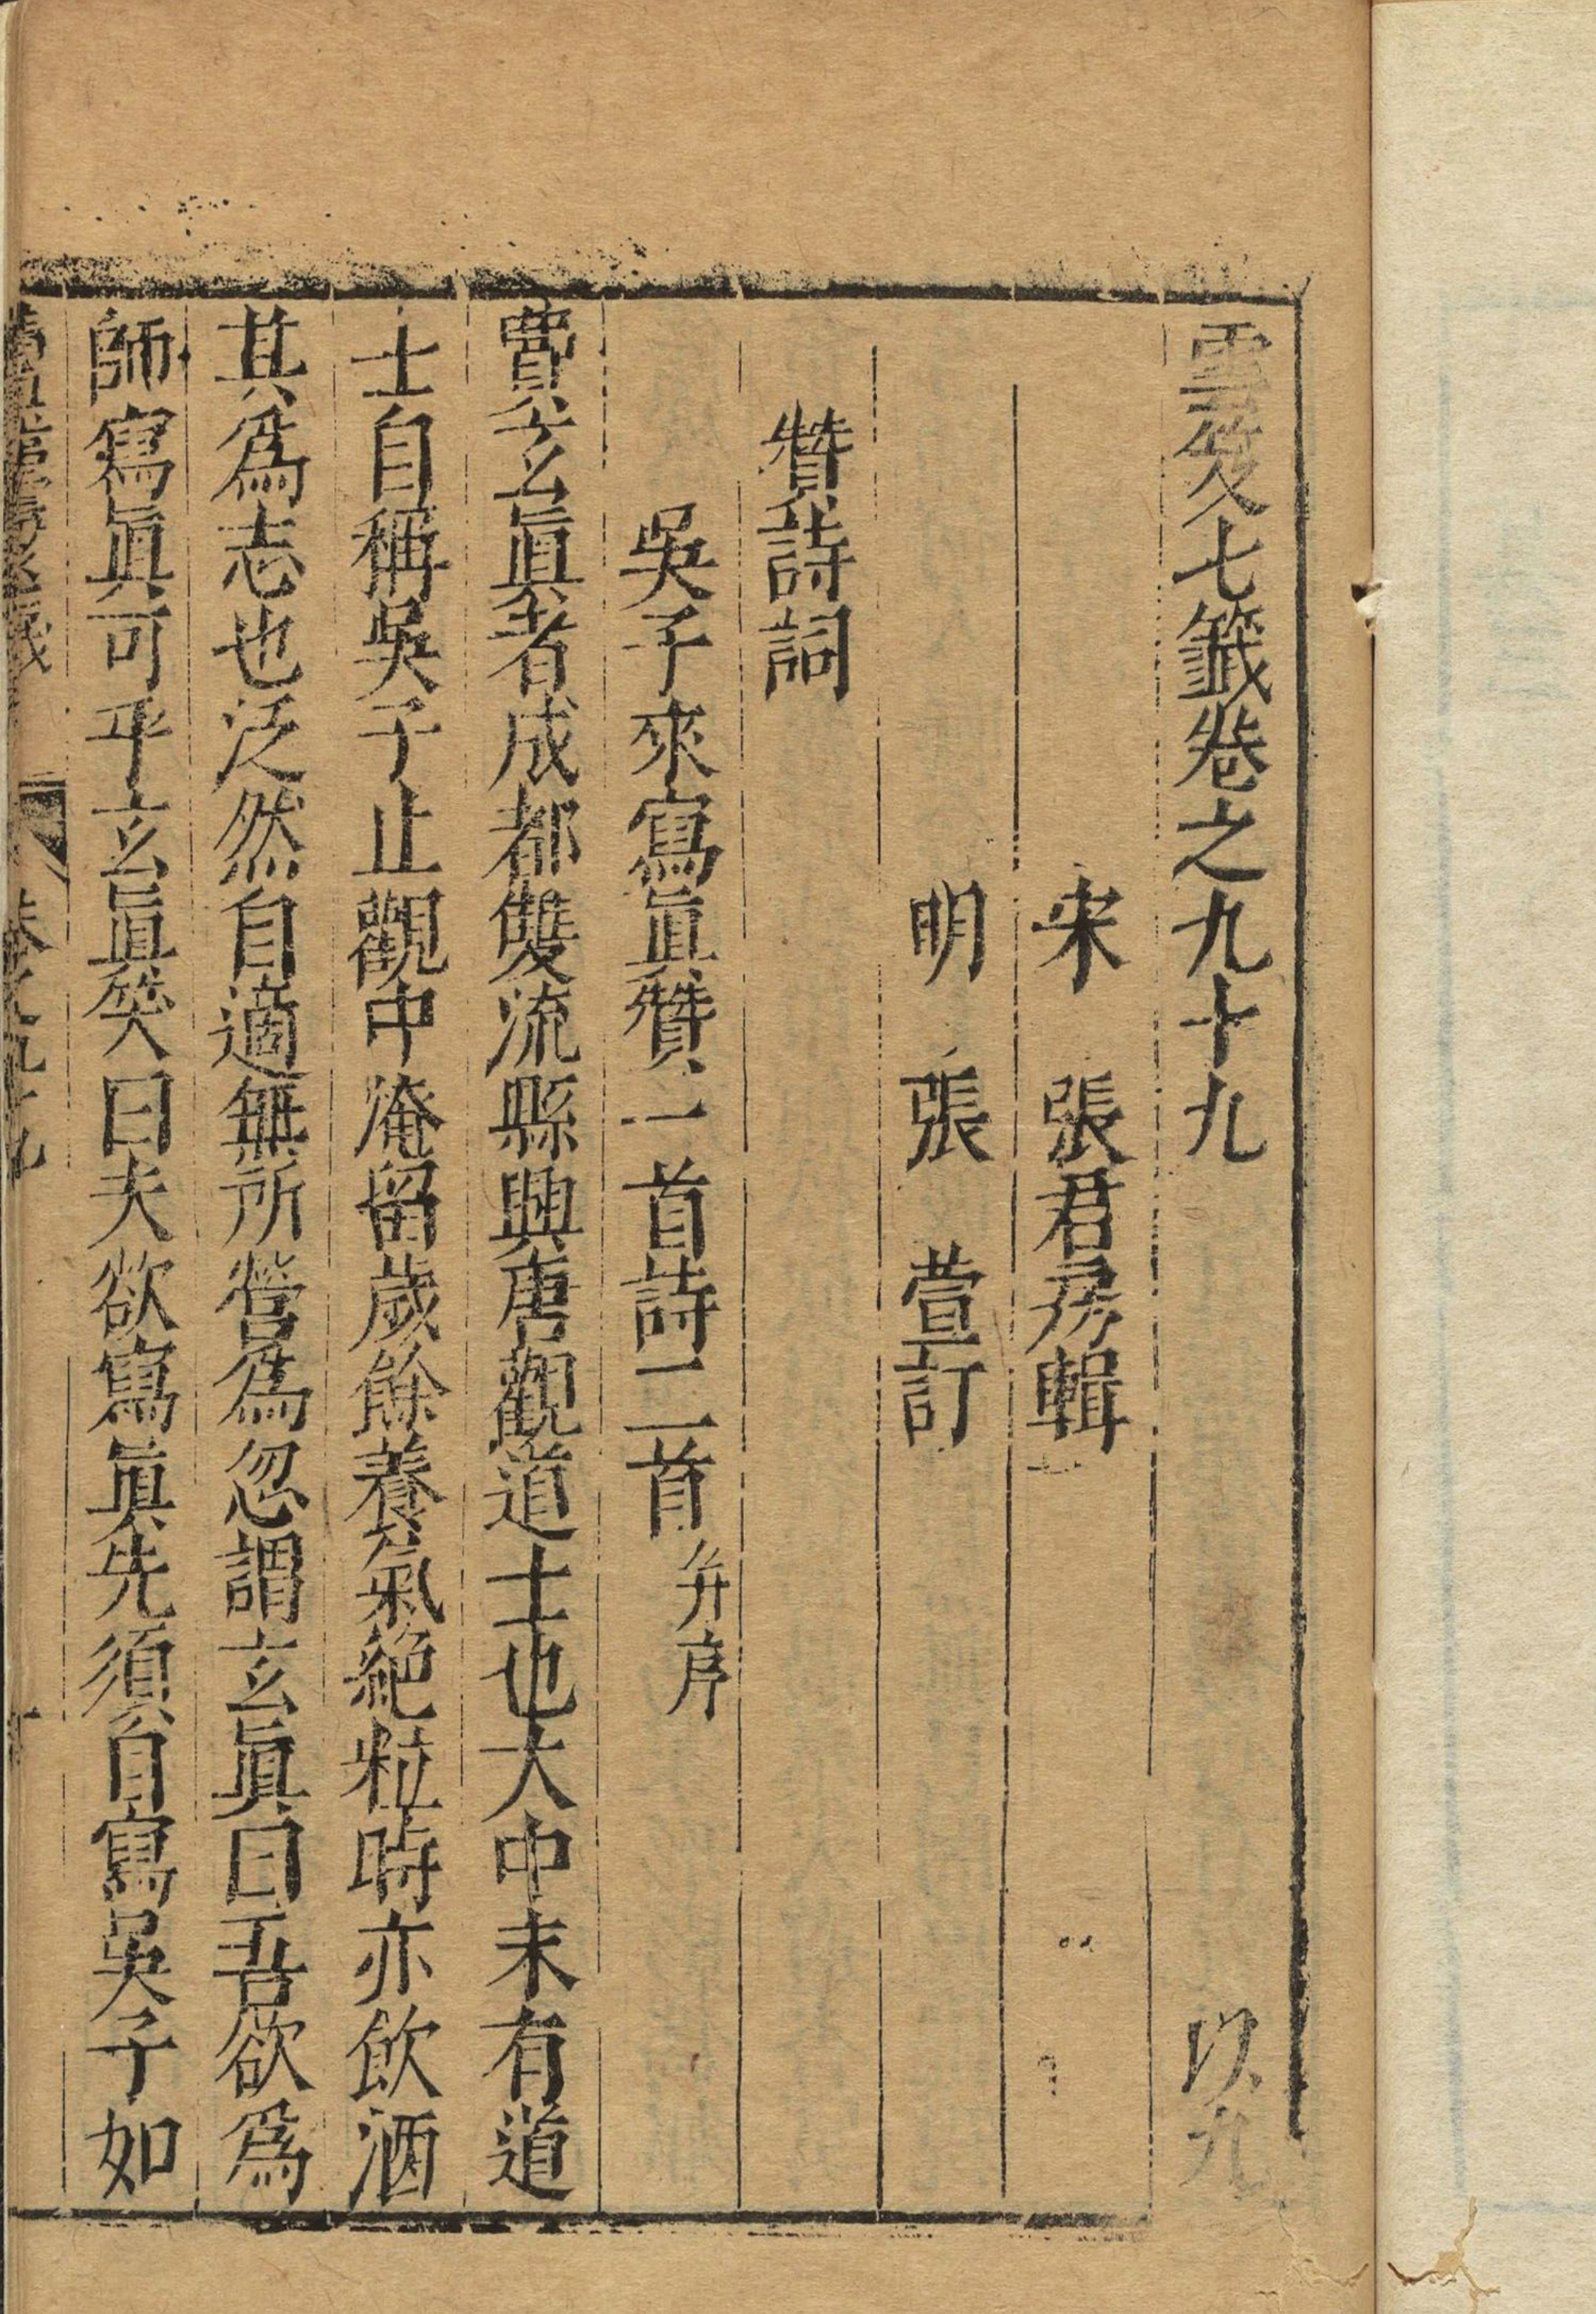 雲笈七籤卷之九十九 以九
宋 張君房輯
明 張 萱訂
贊詩詞
吳子來寫眞贊一首詩二首幷序
賈玄眞者成都雙流縣興唐觀道士也大中末有道
士自稱吳子止觀中淹留歲餘養氣絕粒時亦飲酒
其爲志也泛然自適無所營爲忽謂玄眞曰吾欲爲
師寫眞可乎玄眞笑曰夫欲寫眞先須自寫吳子如
卷之九十九